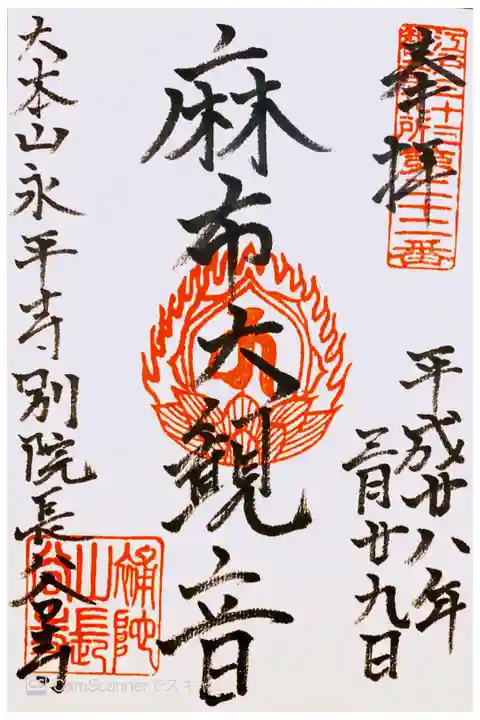 奉拝
江戸三十三
観音札所第二十二番
平成廿八年
三月廿九日
麻布大観音
大本山永平寺別院長谷寺
補陀
山長
谷寺
CamScannerでスキ